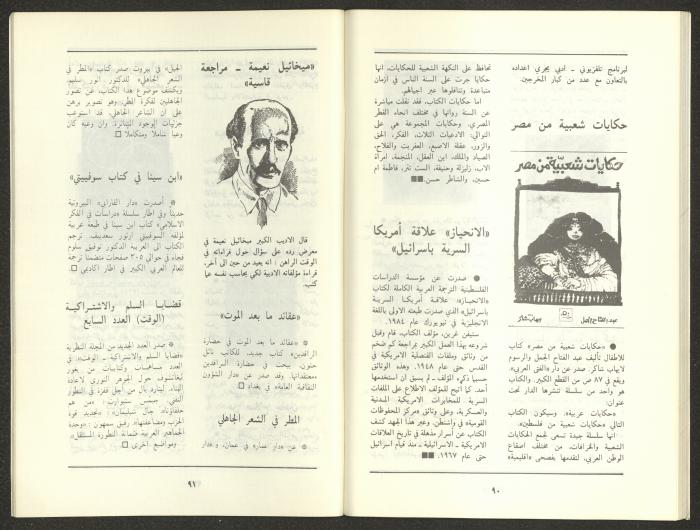 لبرنامج تلفزيوني ـ ادبي يجري اعداده
بالتعاون مع عدد من كبار المخرجين.
حكايات شعبية من مصر
حكايات شعبية من مصر
● «حكايات شعبية من مصر» كتاب
للاطفال تأليف عبد الفتاح الجمل والرسوم
لايهاب شاكر. صدر عن «دار الفتى العربي»
ويقع في ٨٧ ص من القطع الكبير. والكتاب
هو واحد من سلسلة تنشرها الدار تحت
عنوان:
«حكايات عربية». وسيكون الكتاب
التالي «حكايات شعبية من فلسطين».
انها سلسلة جيدة تسعى لجمع الحكايات
الشعبية والخرافات، من مختلف اصقاع
الوطن العربي، لتقدمها بفصحى «اقليمية»
تحافظ على النكهة الشعبية للحكايات. انها
حكايا جرت على السنة الناس في ازمان
متباعدة وتناقلوها عبر اجيالهم.
اما حكايات الكتاب، فقد نقلت مباشرة
عن السنة رواتها في مختلف انحاء القطر
المصري. وحكايات المجموعة هي على
التوالي: الادعيات الثلاث، الفكر، الحق
والزور، عقلة الاصبع، العفريت والفلاح،
الصياد والملك، ابن العقل، المتجمعة، امرأة
الاب، زليزلة وحنيفة، الست تتر، فطامة ام
حسين، والشاطر حسن. ■■
«الانحياز» علاقة أمريكا
السرية باسرائيل»
● صدرت عن مؤسسة الدراسات
الفلسطينية الترجمة العربية الكاملة لكتاب
«الانحياز: علاقة أمريكا السرية
باسرائيل» الذي صدرت طبعته الاولى باللغة
الانجليزية في نيويورك عام ١٩٨٤.
ستيفن غرين، مؤلف الكتاب، قام وقبل
شروعه بهذا العمل الكبير بمراجعة كم ضخم
من وثائق وملفات القنصلية الامريكية في
القدس حتى عام ١٩٤٨. وهذه الوثائق
حسبما ذكره المؤلف ـ لم يسبق ان استخدمها
أحد. كما اتيح للمؤلف الاطلاع على الملفات
السرية للمخابرات الامريكية المدنية
والعسكرية، وعلى وثائق «مركز المحفوظات
القومية» في واشنطن. وعبر هذا الجهد كشف
الكتاب عن أسرار مذهلة في تاريخ العلاقات
الامريكية ـ الاسرائيلية ـ منذ قيام اسرائيل
حتى عام ١٩٦٧. ■■
٩٠
«ميخائيل نعيمة ـ مراجعة
قاسية»
قال الاديب الكبير ميخائيل نعيمة في
معرض رده على سؤال حول قراءاته في
الوقت الراهن: انه يعيد من حين الى آخر،
قراءة مؤلفاته الادبية لكي يحاسب نفسه عما
كتب.
«عقائد ما بعد الموت»
● «عقائد ما بعد الموت في حضارة
الرافدين» كتاب جديد، للكاتب نائل
حنون، يبحث في حضارة الرافدين
ومعتقداتها. وقد صدر عن «دار الشؤون
الثقافية العامة» في بغداد □
المطر في الشعر الجاهلي
● عن «دار عمار» في عمان، و«دار
الجيل» في بيروت صدر كتاب «المطر في
الشعر الجاهلي» للدكتور أنور سليم.
ويكشف موضوع هذا الكتاب، عن تصور
الجاهليين لفكرة المطر. وهو تصوير يرهن
على ان الشاعر الجاهلي، قد استوعب
جزئيات الوجود المتناثرة. وان وعيه كان
وعيا شاملا ومتكاملا □
«ابن سينا في كتاب سوفييتي»
● أصدرت «دار الفارابي» البيروتية
حديثا وفي اطار سلسلة «دراسات في الفكر
الاسلامي» كتاب ابن سينا في طبعة عربية
لمؤلفه السوفييتي ارتور سعدييف. ترجم
الكتاب الى العربية الدكتور توفيق سلوم
فجاء في حوالي ٣٠٥ صفحات متضمنا ترجمة
للعالم العربي الكبير في اطار اكاديمي □
قضايا السلم والاشتراكية
(الوقت) العدد السابع
● صدر العدد الجديد من المجلة النظرية
«قضايا السلم والاشتراكية ـ الوقت». في
العدد مساهمات وكتابات من
حول الجوهر الثوري لاعادة
البناء.
«وحدة
الجماهير العربية ضمانة التطورة المستقل».
ومواضيع اخرى □
٩١